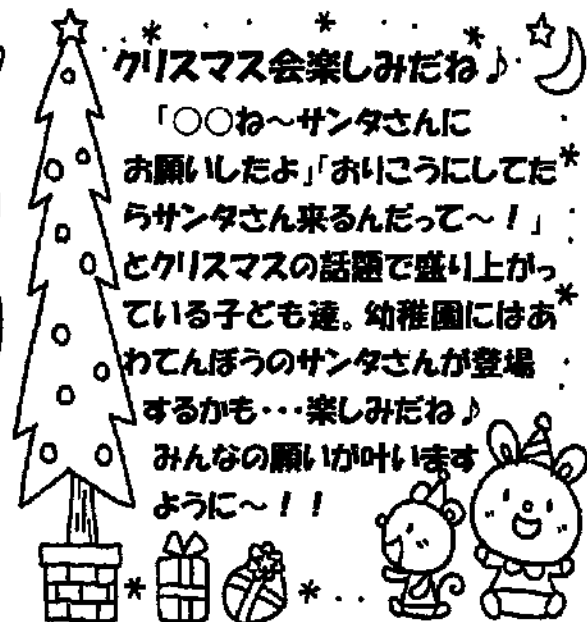 クリスマス会楽しみだね♪
「○○ね～サンタさんに
お願いしたよ」「おりこうにしてた
らサンタさん来るんだって～！」
とクリスマスの話題で盛り上がっ
ている子ども達。幼稚園にはあ
わてんぼうのサンタさんが登場
するかも・・・楽しみだね♪
みんなの願いが叶います
ように～！！